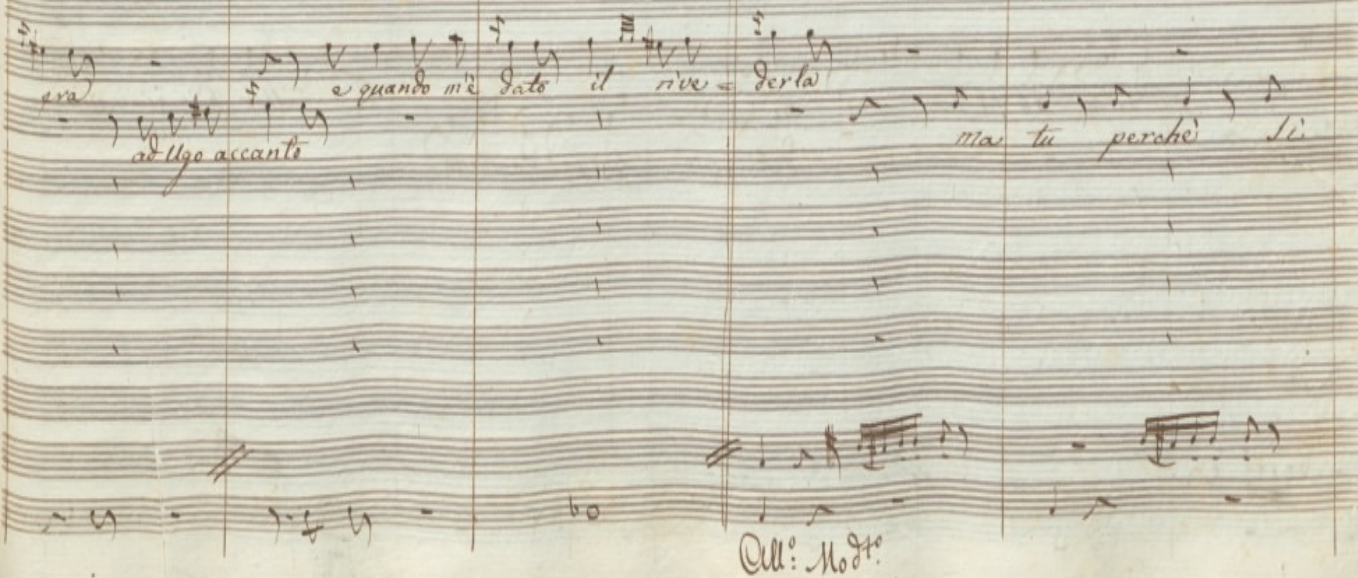 era e quando m'è dato il rive = derla
ad Ugo accanto ma tu perchè si
All.º Mod.tº